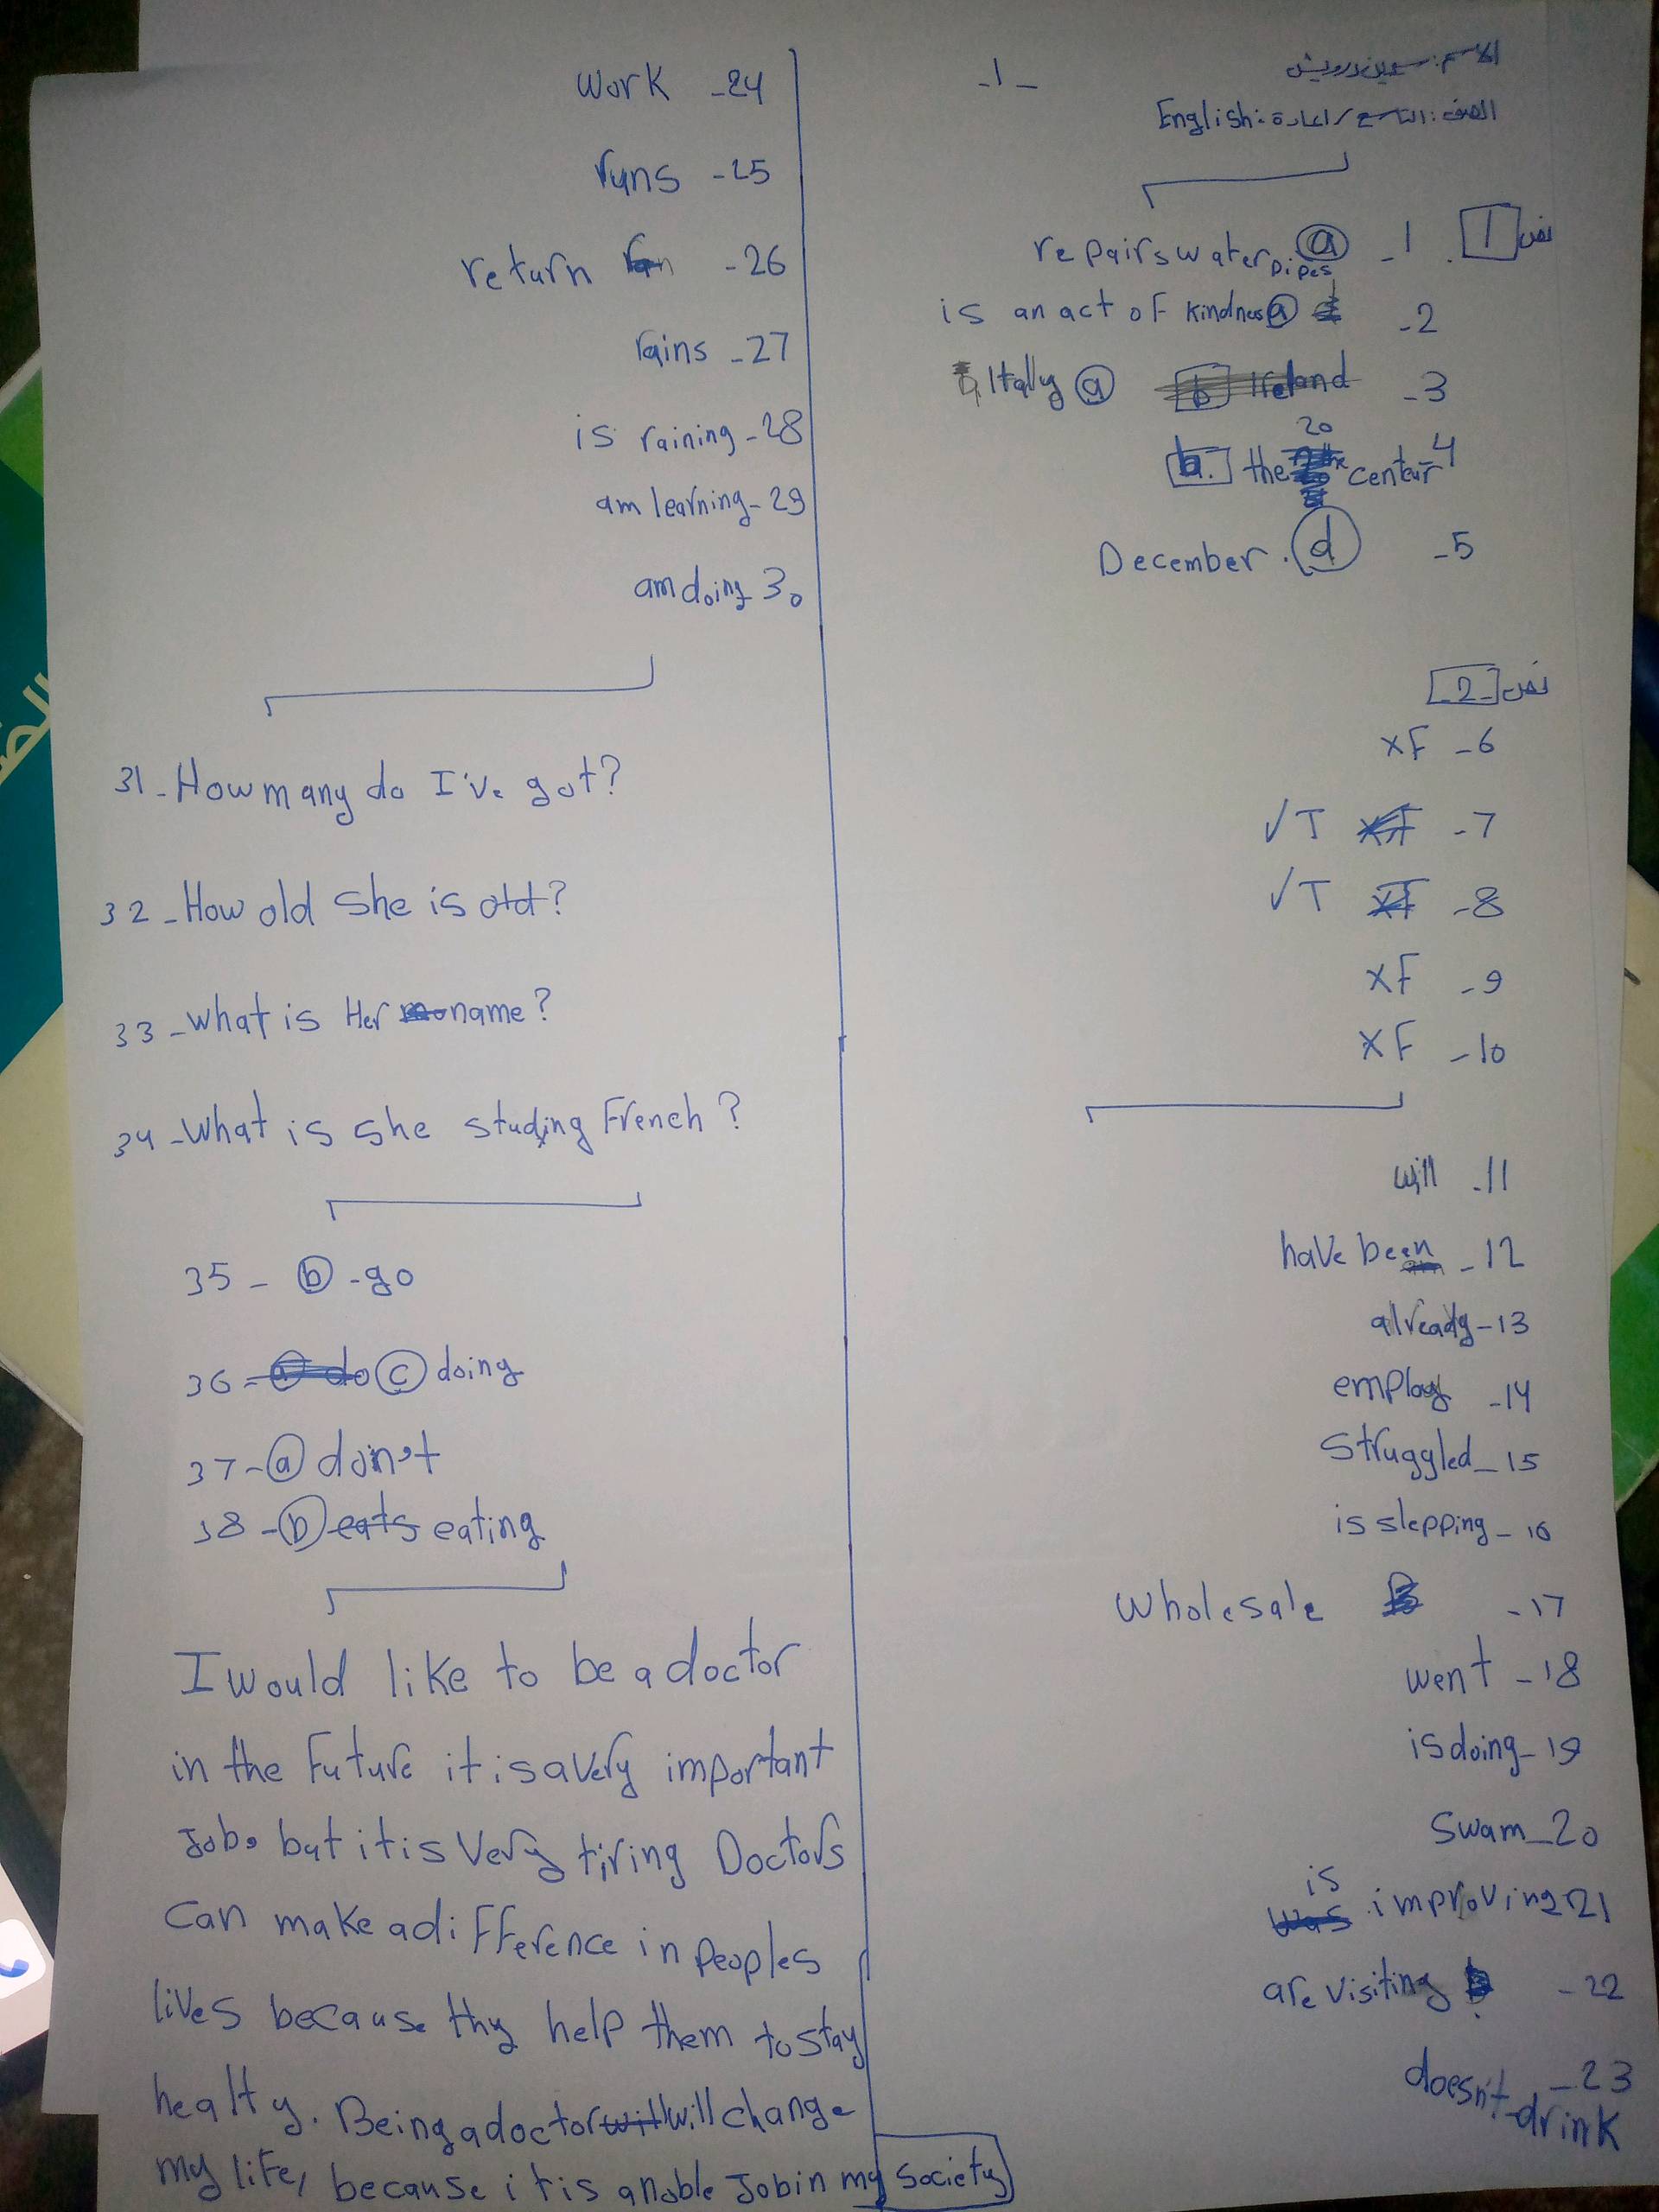 -1-
الاسم: سيمين درويش
الصف: التاسع / اعادة English:
نص 1
1- a repairs water pipes
2- a is an act of kindness
3- a Itally
4- b. the 20 centeur
5- d. December
نص -2-
6- F x
7- T √
8- T √
9- F x
10- F x
11- will
12- have been
13- already
14- employ
15- struggled
16- is slepping
17- Wholesale
18- went
19- is doing
20- Swam
21- is improving
22- are visiting
23- doesn't drink
24- work
25- runs
26- return
27- rains
28- is raining
29- am learning
30 am doing
31- How many do I've got?
32- How old she is?
33- what is Her name?
34- What is she studing French?
35- b - go
36- c doing
37- a don't
38- b eating
I would like to be a doctor
in the Future it is a very important
Job, but it is Very tiring Doctors
can make a difference in peoples
lives because thy help them to stay
healty. Being a doctor will change
my life, because it is a noble Job in my society